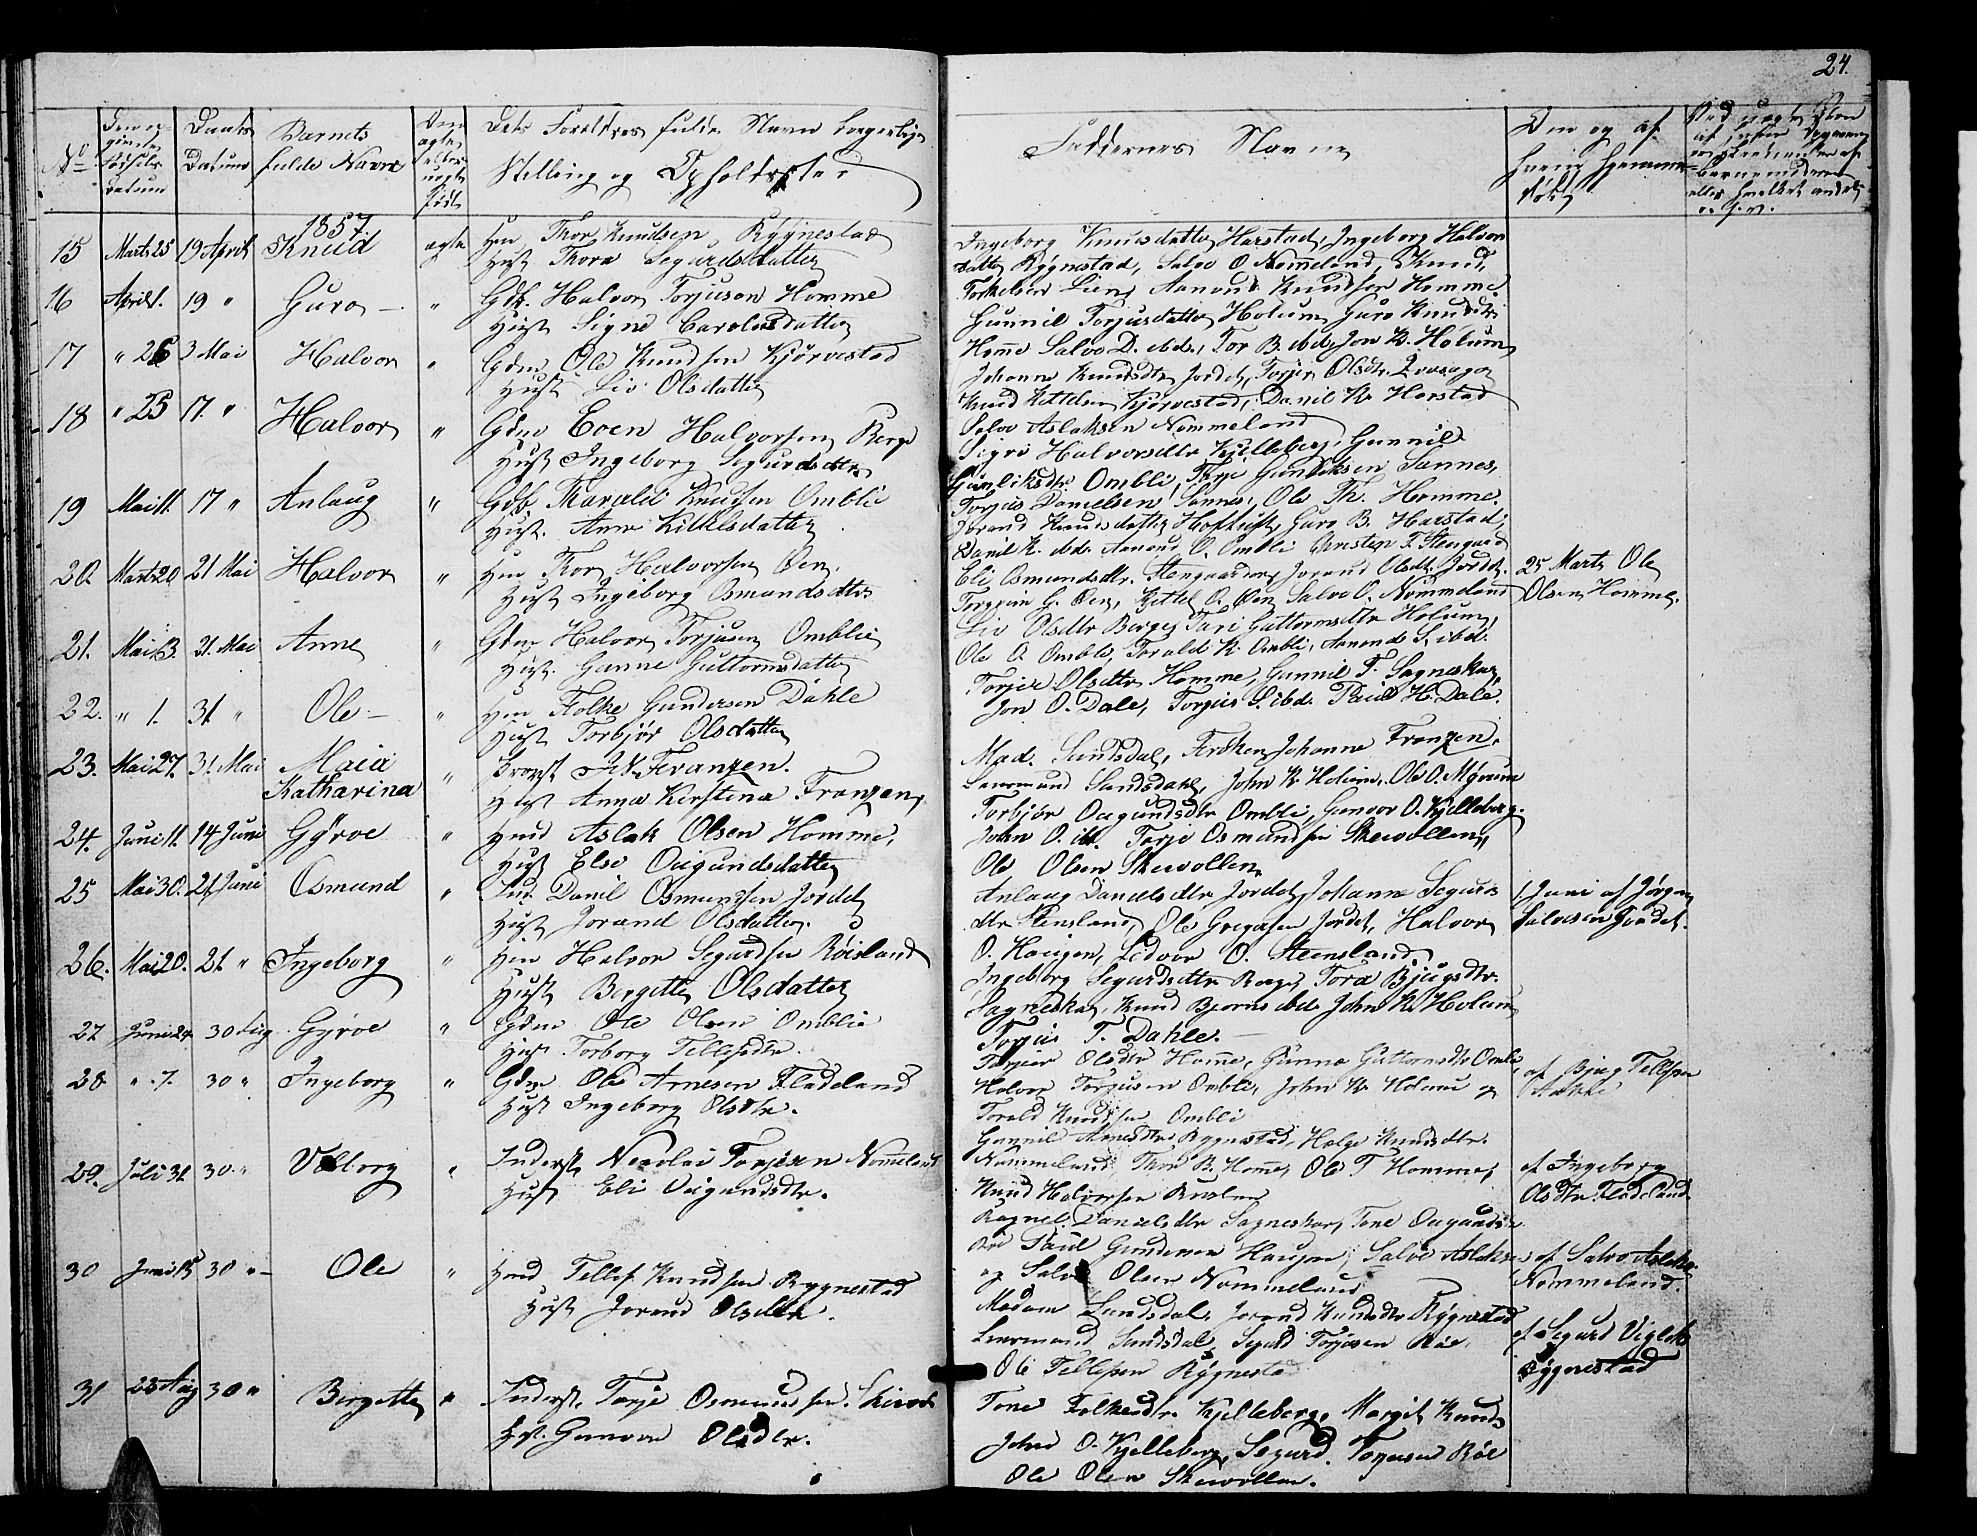 24.
No
Barnets
fulde Navn
Det Forældres fulde Navn borgerlige
Stilling og Opholdssted
Faddernes Navne
1857.
15 Marts 25 19 April Knud ægte Hm Thor Knudsen Rygnestad
Hust Thora Segurdsdatter
Ingeborg Knudsdatter Harstad, Ingeborg Halvors
datter Rygnestad, Salve O. Nomeland, Knud
16 April 1. 19 " Guro " Gdb. Halvor Torjusen Homme
Hust Signe Carolusdatter
Torkelsen Lien, Aanund Knudsen Homme
Gunnil Torjusdatter Holum, Guro Knudsdtr
17 " 26 3 Mai Halvor " Gdm Ole Knudsen Kjørvestad
Hust Liv Olsdatter
Homme Salve D. ibd., Tor B. ibd, Jon K. Holum
Johanne Knudsdtr Jordet, Torjer Olsdtr
Knud Kittelsen Kjørvestad, Danil K. Harstad
18 " 25 17. " Halvor " Gdm Even Halvorsen Berge
Hust Ingeborg Segurdsdtr
Salve Aslaksen Nommeland
Sigri Halvorsdtr Kjelleberg, Gunnil
Gunliksdtr Ombli, Terje Gunliksen Sannes,
19 Mai 11. 17 " Anlaug " Gdb. Tharald Knudsen Omblie
Hust. Anne Kittelsdatter
Torjus Danielsen Sannes, Ole Th. Homme.
Jorand Knudsdatter Hoftuft, Guro B. Harstad,
Danil K. ibd. Aanund O. Ombli Christen T. Stengaard
20. Marts 20 21 Mai Halvor " Hm Thor Halvorsen Øen.
Hust Ingeborg Osmundsdtr
Eli Osmundsdtr. Stengaarden, Jorand Olsdtr. Jordet.
Torgrim G. Øen, Kittel O. Øen Salve O. Nommeland
25 Marts Ole
Olsen Homme.
21. Mai 3. 21. Mai Anne " Gdm Halvor Torjusen Omblie
Hust. Gunne Guttormsdatter
Liv Olsdtr Berge, Tari Guttormsdtr Holum,
Ole O. Ombli, Torald K. Ombli, Aanund S. ibd.
22. " 1. 31 " Ole " Hm Folke Gundersen Dahle
Hust Torbjør Olsdatter
Torjer Olsdtr Homme, Gunnil T. Sagneskar,
Jon O. Dale, Torjus S. ibd. Paul H. Dale.
23. Mai 27. 31. Mai Maia
Katharina " Provst Franzen.
Hust Anna Kirstina Franzen
Mad. Sundsdal, Frøken Johanna Franzen.
Lensmand Sundsdahl, John K. Holum, Ole O. Myrum
24. Juni 11. 14 Juni Gyroe " Hmd Aslak Olsen Homme,
Hust Else Ougundsdatter
Torbjør Ougundsdtr Ombli, Gunvor O. Kjelleberg.
John O. ibd. Terje Osmundsen Skeivollen,
Ole Olsen Skeivollen
25 Mai 30. 21 Juni Osmund " Danil Osmundsen Jordet
Hust Jorand Olsdatter
Anlaug Danielsdtr Jordet, Johanne Segurs
dtr Stensland, Ole Gregersen Jordet, Halvor
O. Haugen, Lidvor O. Steensland
1 Juni af Jørgen
Salvesen Jordet.
26. Mai 20. 21. " Ingeborg " Hm Halvor Segurdsen Røisland
Hust Bergette Olsdatter
Ingeborg Segurdsdtr Berge, Tora Bjugsdtr.
Sagneskar, Knud Bjørns ibd John K. Holum
Torjus T. Dahle.
27 Juni 24 30 Aug. Gyroe " Gdm Ole Olsen Omblie
Hust Torborg Tellefsdtr.
Torjer Olsdtr Homme, Gunne Guttormsdtr Ombli,
Halvor Torjusen Ombli, John K. Holum og
Torald Knudsen Ombli
28. " 7. 30 " Ingeborg " Gdm Ole Arnesen Fladeland
Hust Ingeborg Olsdtr.
Gunnil Arnesdtr Rygnestad, Helge Knudsdtr.
Nommeland, Thor B. Homme, Ole T. Homme,
Knud Halvorsen
af Bjug Tellefsen
29. Juli 31 30 " Valborg " Inderst Nicolai Torjesen Nomeland
Hust Eli Ougundsdtr.
Ragnil Danielsdtr Sagneskar, Tone Ougunds
Røe Paul Gundersen Haugen, Salve Aslaksen
og Salve Olsen Nommeland
af Ingeborg
Olsdtr. Fladeland
30 Juni 15 30 " Ole " Hmd Tellef Knudsen Rygnestad
Hust Jorand Olsdtr.
Madam Sundsdal, Jorand Knudsdtr Rygnestad
Lensmand Sundsdal, Segurd Torjusen Røe
Ole Tellefsen Rygnestad
af Salve Aslaks
Nommeland.
31 23 Aug 30 " Bergette " Inderst. Terje Osmundsen
Hust. Gunvor Olsdtr.
Tone Folkesdtr. Kjelleberg, Margit Knuds
John O. Kjelleberg, Segurd Torjusen Røe
Ole Olsen Skeivollen.
af Segurd Vigleks
Rygnestad